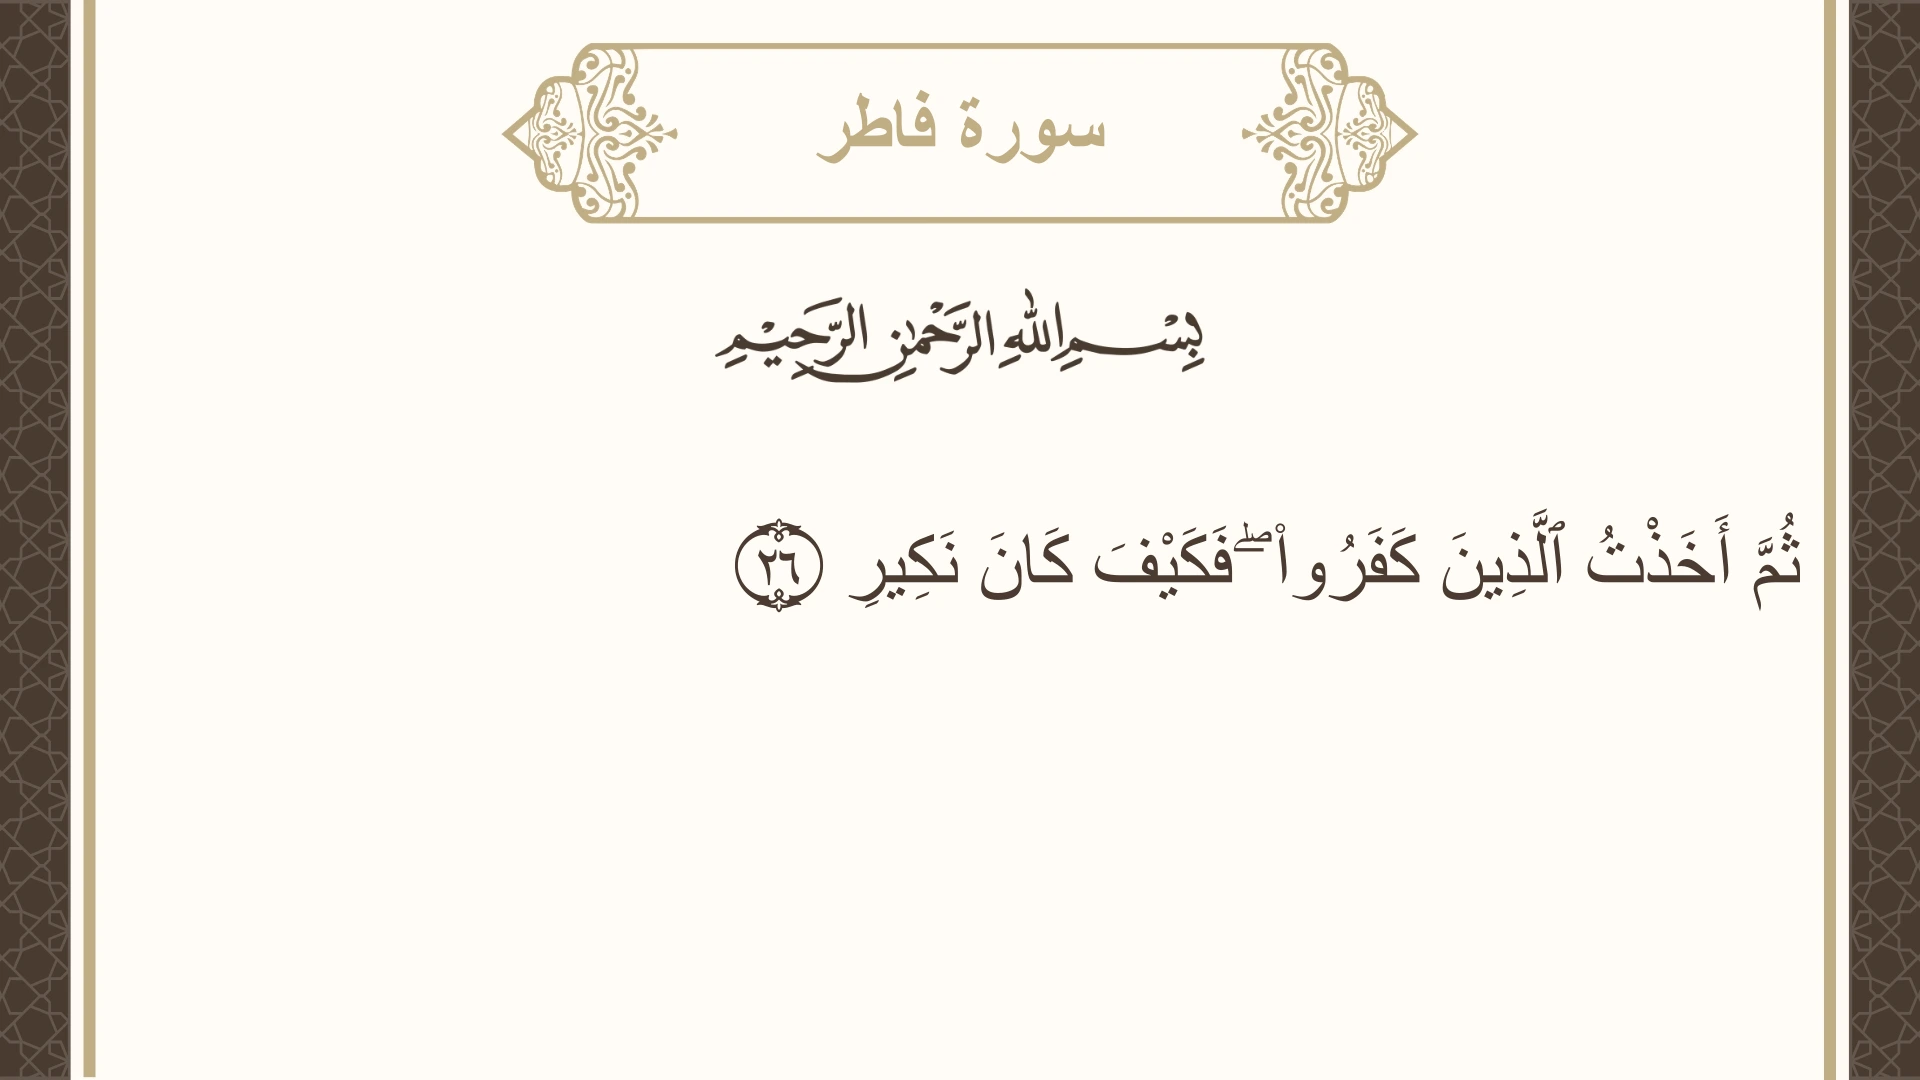 سورة فاطر
بِسْمِ اللهِ الرَّحْمٰنِ الرَّحِيْمِ
ثُمَّ أَخَذْتُ ٱلَّذِينَ كَفَرُوا۟ ۖ فَكَيْفَ كَانَ نَكِيرِ ٢٦